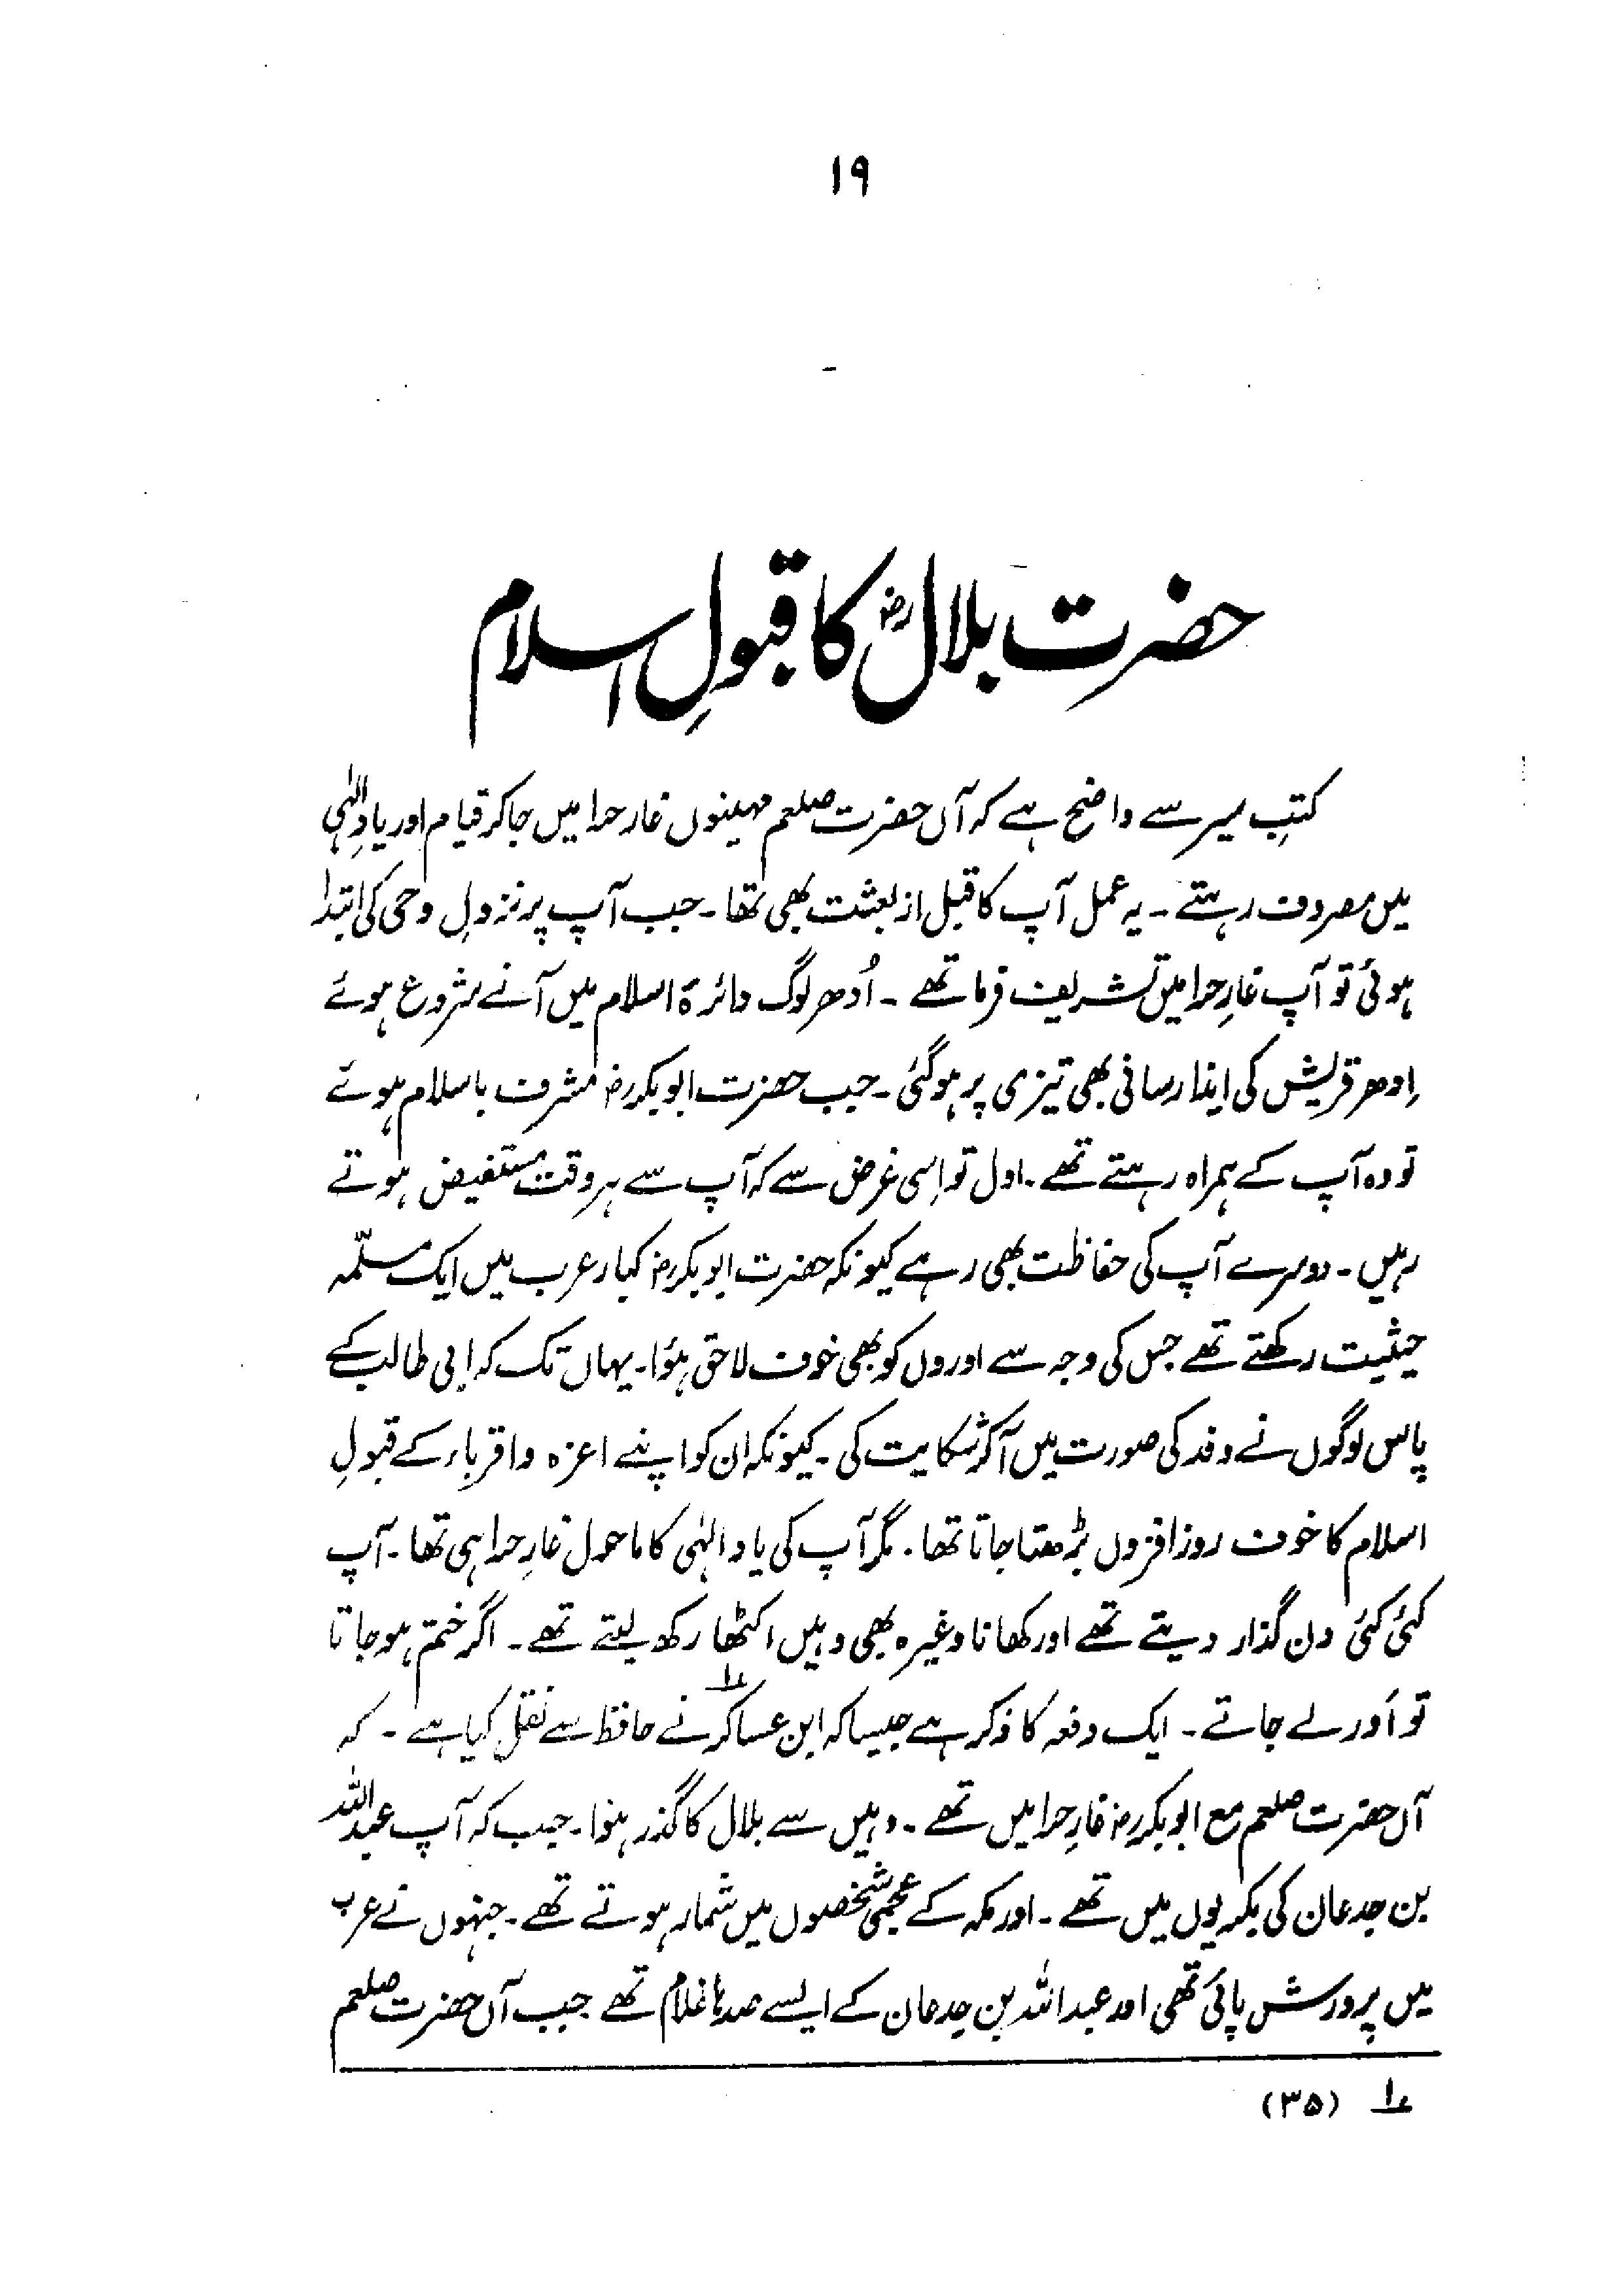 ۱۹
حضرت بلالؓ کا قبولِ اسلام
کتبِ سیر سے واضح ہے کہ آں حضرت صلعم مہینوں غار حرا میں جا کر قیام اور یادِ الٰہی
میں مصروف رہتے۔ یہ عمل آپ کا قبل از بعثت بھی تھا۔ جب آپ پر نزولِ وحی کی ابتدا
ہوئی تو آپ غارِ حرا میں تشریف فرما تھے۔ اُدھر لوگ دائرۃ اسلام میں آنے شروع ہوئے
اِدھر قریش کی ایذا رسانی بھی تیزی پر ہو گئی۔ جب حضرت ابوبکرؓ مشرف باسلام ہوئے
تو وہ آپ کے ہمراہ رہتے تھے۔ اول تو اِسی غرض سے کہ آپ سے ہر وقت مستفیض ہوتے
رہیں۔ دوسرے آپ کی حفاظت بھی رہے کیونکہ حضرت ابوبکرؓ کبار عرب میں ایک مسلّمہ
حیثیت رکھتے تھے جس کی وجہ سے اوروں کو بھی خوف لاحق ہؤا۔ یہاں تک کہ ابی طالب کے
پاس لوگوں نے وفد کی صورت میں آ کر شکایت کی۔ کیونکہ ان کو اپنے اعزہ واقرباء کے قبولِ
اسلام کا خوف روز افزوں بڑھتا جاتا تھا۔ مگر آپ کی یاد الہٰی کا ماحول غارِ حرا ہی تھا۔ آپ
کئی کئی دن گذار دیتے تھے اور کھانا وغیرہ بھی وہیں اکٹھا رکھ لیتے تھے۔ اگر ختم ہو جاتا
تو اَور لے جاتے۔ ایک دفعہ کا ذکر ہے جیسا کہ ابن عساکر نے ؂۱ حافظ سے نقل کیا ہے۔ کہ
آں حضرت صلعم مع ابوبکرؓ غارِ حرا میں تھے۔ وہیں سے بلال کا گذر ہؤا۔ جب کہ آپ عبداللہ
بن جدعان کی بکریوں میں تھے۔ اور مکہ کے عجمی شخصوں میں شمار ہوتے تھے۔ جنہوں نے عرب
میں پرورش پائی تھی اور عبداللہ بن جدعان کے ایسے صدہا غلام تھے جب آں حضرت صلعم
؂۱ (۳۵)